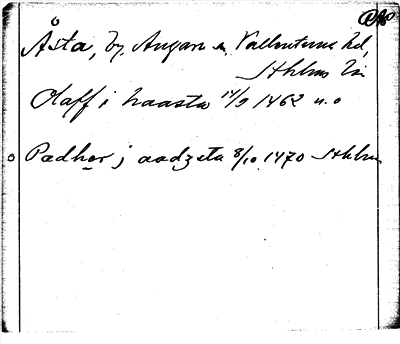 Åsta, by, Angarn sn, Vallentuna hd,
Sthlms län
Olaff i haasta 14/9 1462 u.o
Pædhor j aadzsta 8/10 1470 Sthlm